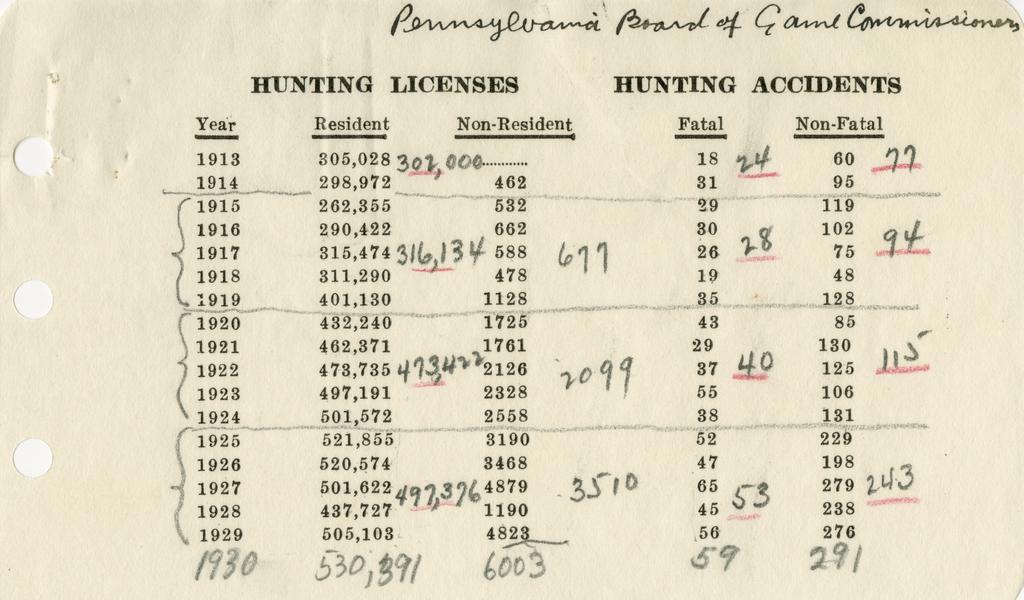 Pennsylvania Board of Game Commissioners
HUNTING LICENSES HUNTING ACCIDENTS
Year Resident Non-Resident Fatal Non-Fatal
1913 305,028 302,000 ............ 18 24 60 77
1914 298,972 462 31 95
1915 262,355 532 29 119
1916 290,422 662 30 102
1917 315,474 316,134 588 677 26 28 75 94
1918 311,290 478 19 48
1919 401,130 1128 35 128
1920 432,240 1725 43 85
1921 462,371 1761 29 130
1922 473,735 473,422 2126 2099 37 40 125 115
1923 497,191 2328 55 106
1924 501,572 2558 38 131
1925 521,855 3190 52 229
1926 520,574 3468 47 198
1927 501,622 497,376 4879 3510 65 53 279 243
1928 437,727 1190 45 238
1929 505,103 4823 56 276
1930 530,391 6003 59 291